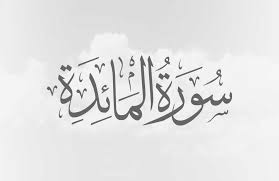 سُورَةُ المَائِدَةِ